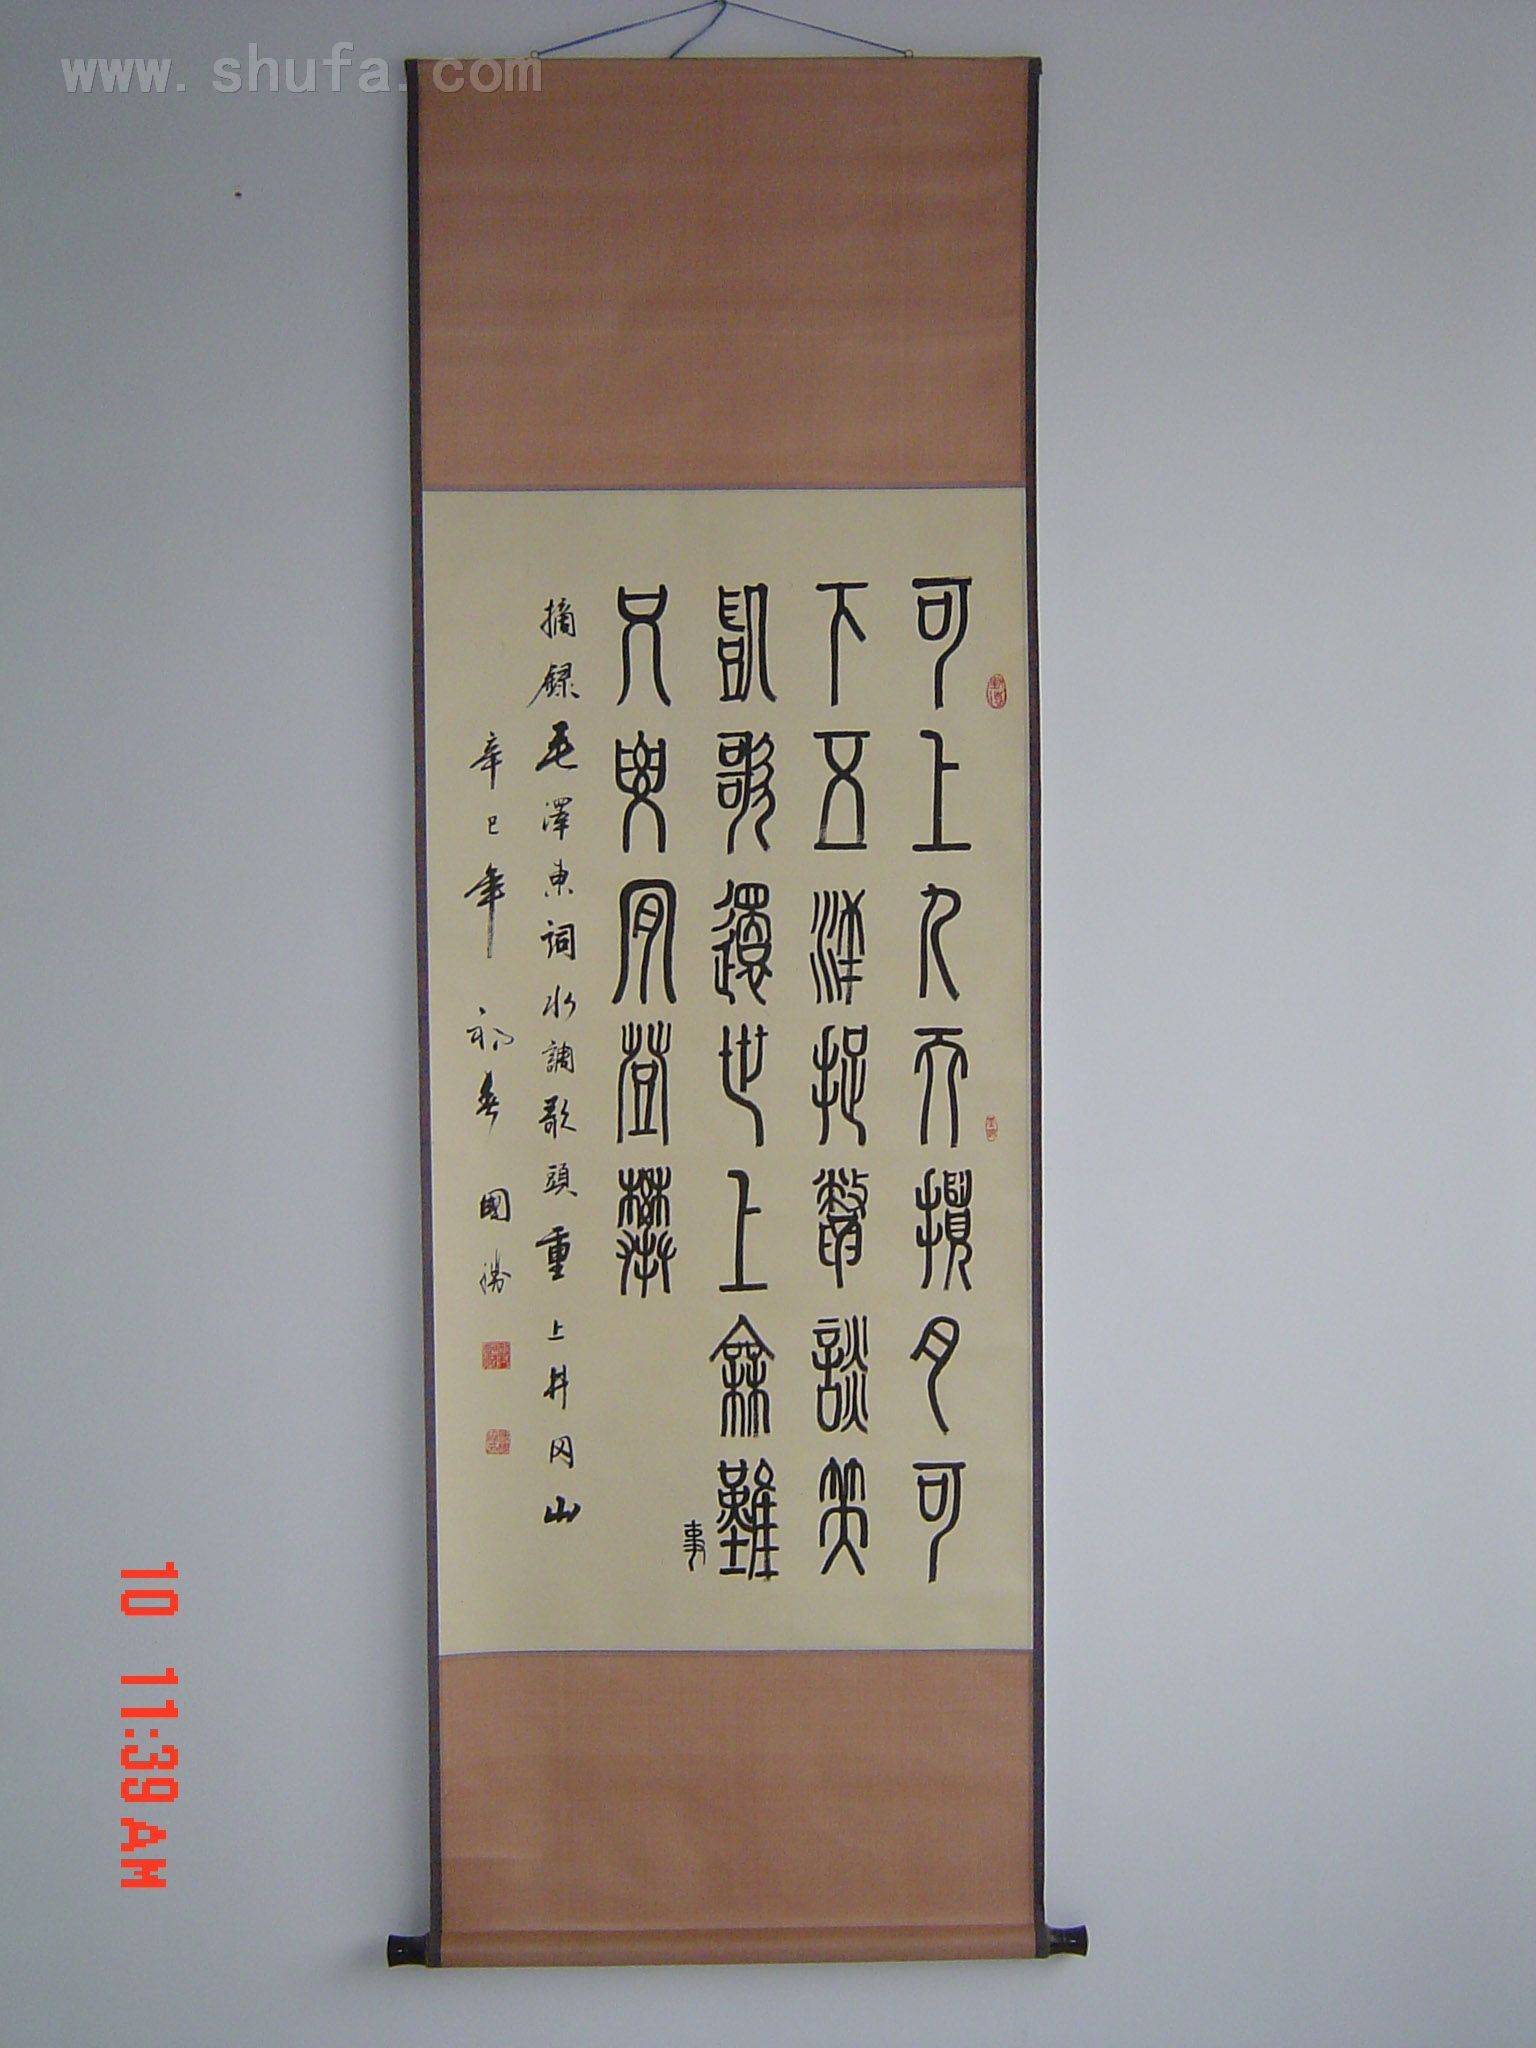 www.shufa.com
可上九天攬月可
下五洋捉鱉談笑
凱歌還世上無難
事
只要肯登攀
摘録毛澤東詞水調歌頭重上井冈山
辛巳年初春國勝
10 11:39AM